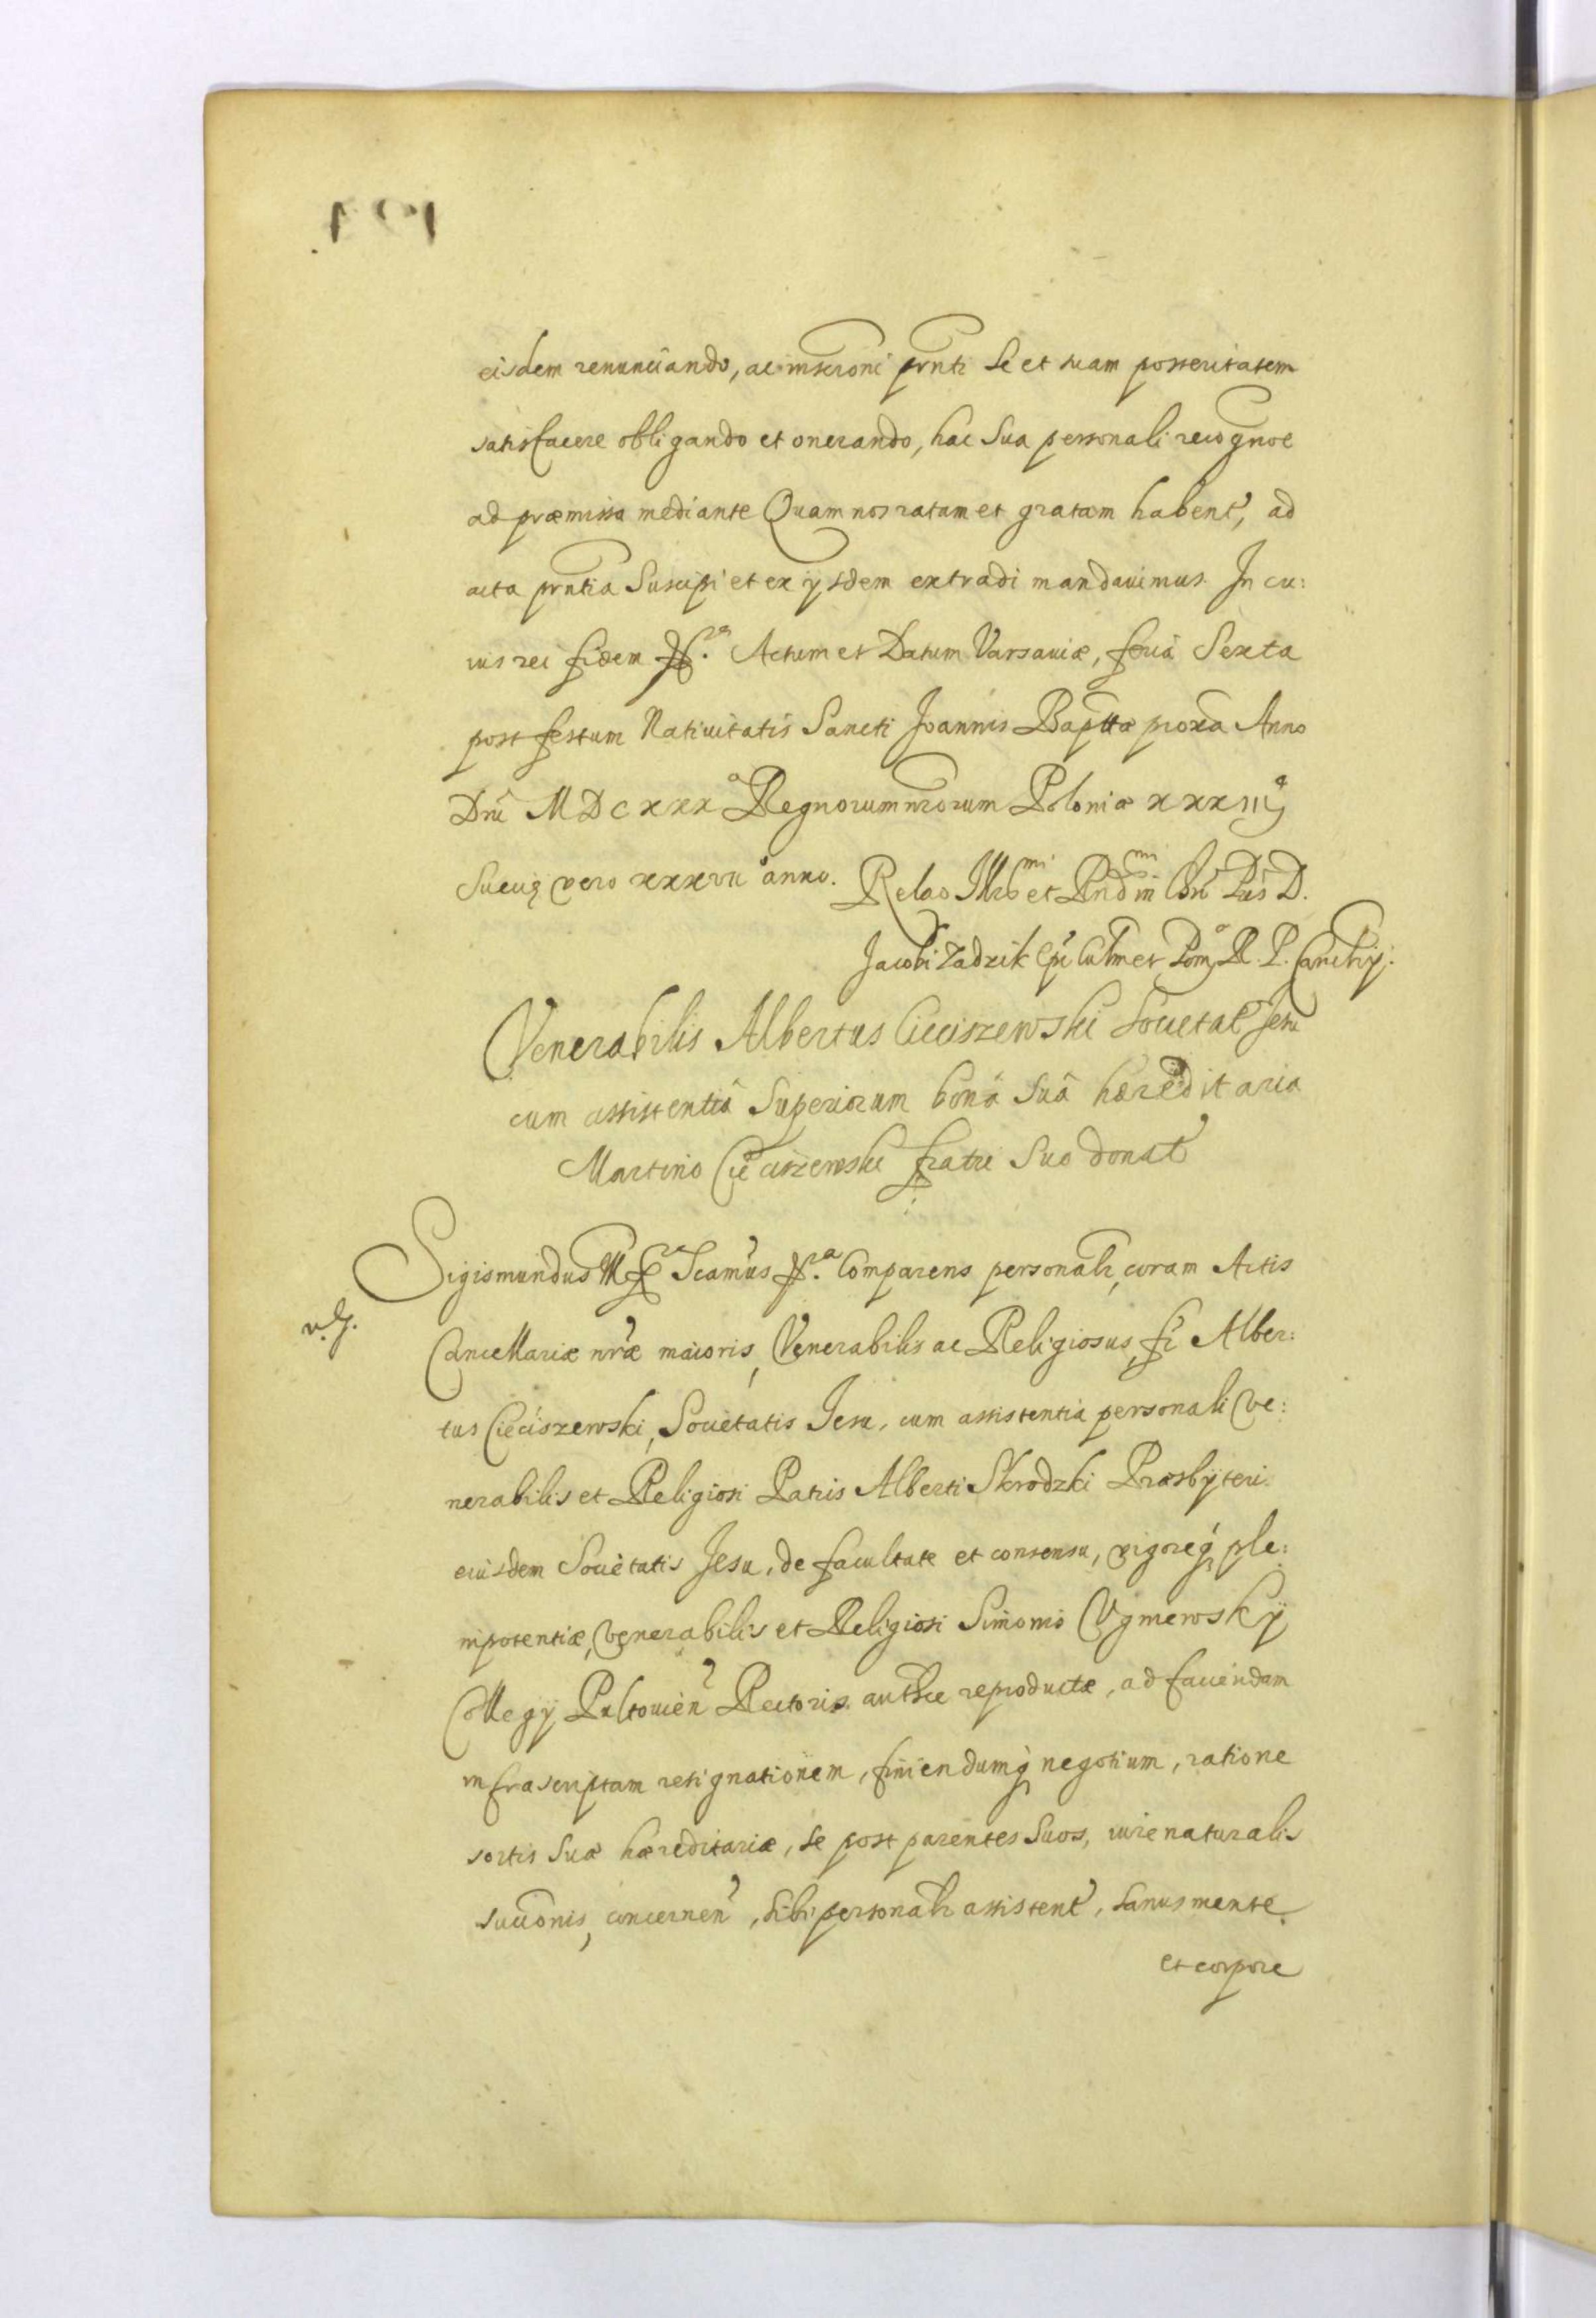 eisdem renunciando, ac inscrōni prnti Se et suam posteritatem
satisfacere obligando et onerando, hac Sua personali recognoe
ad præmissa mediante Quam nos ratam et gratam habent, ad
acta prntia Suscipi et ex ijsdem extradi mandauimus. In cu:
ius rei fidem Actum et Datum Varsauiæ, feria Sexta
post festum Natiuitatis Sancti Joannis Bapttæ proxa Anno
Dni MDCXXX Regnorum nrorum Poloniæ XXXIII
Sueciæ vero XXXVII anno. Relao Illrmi et Rndmi Dni D.
Jacobi Zadzik Epi Culmen et Pom R. P. Cancrij.
Venerabilis Albertus Cieciszewski Societat Jesu
cum assistentiâ Superiorum bona Suâ hæreditaria
Martino Cieciszewski fratri Suo donat
Sigismundus Comparens personalr, coram Actis
Cancellariæ nræ maioris, Venerabilis ac Religiosus, fr Alber:
tus Cieciszewski, Societatis Jesu, cum assistentia personali Ve:
nerabilis et Religiosi Patris Alberti Skrodzki Præsbyteri
eiusdem Societatis Jesu, de facultate et consensu, vigoreq ple:
nipotentiæ, Venerabilis et Religiosi Simonis Vgniewsky
Collegij Pultouien Rectoris authce reproductæ, ad faciendam
infrascriptam resignationem, finiendumq negotium, ratione
sortis Suæ hæreditariæ, Se post parentes Suos, iure naturalis
succonis, concernen, Sibi personalr assistent, Sanus mente
et corpore